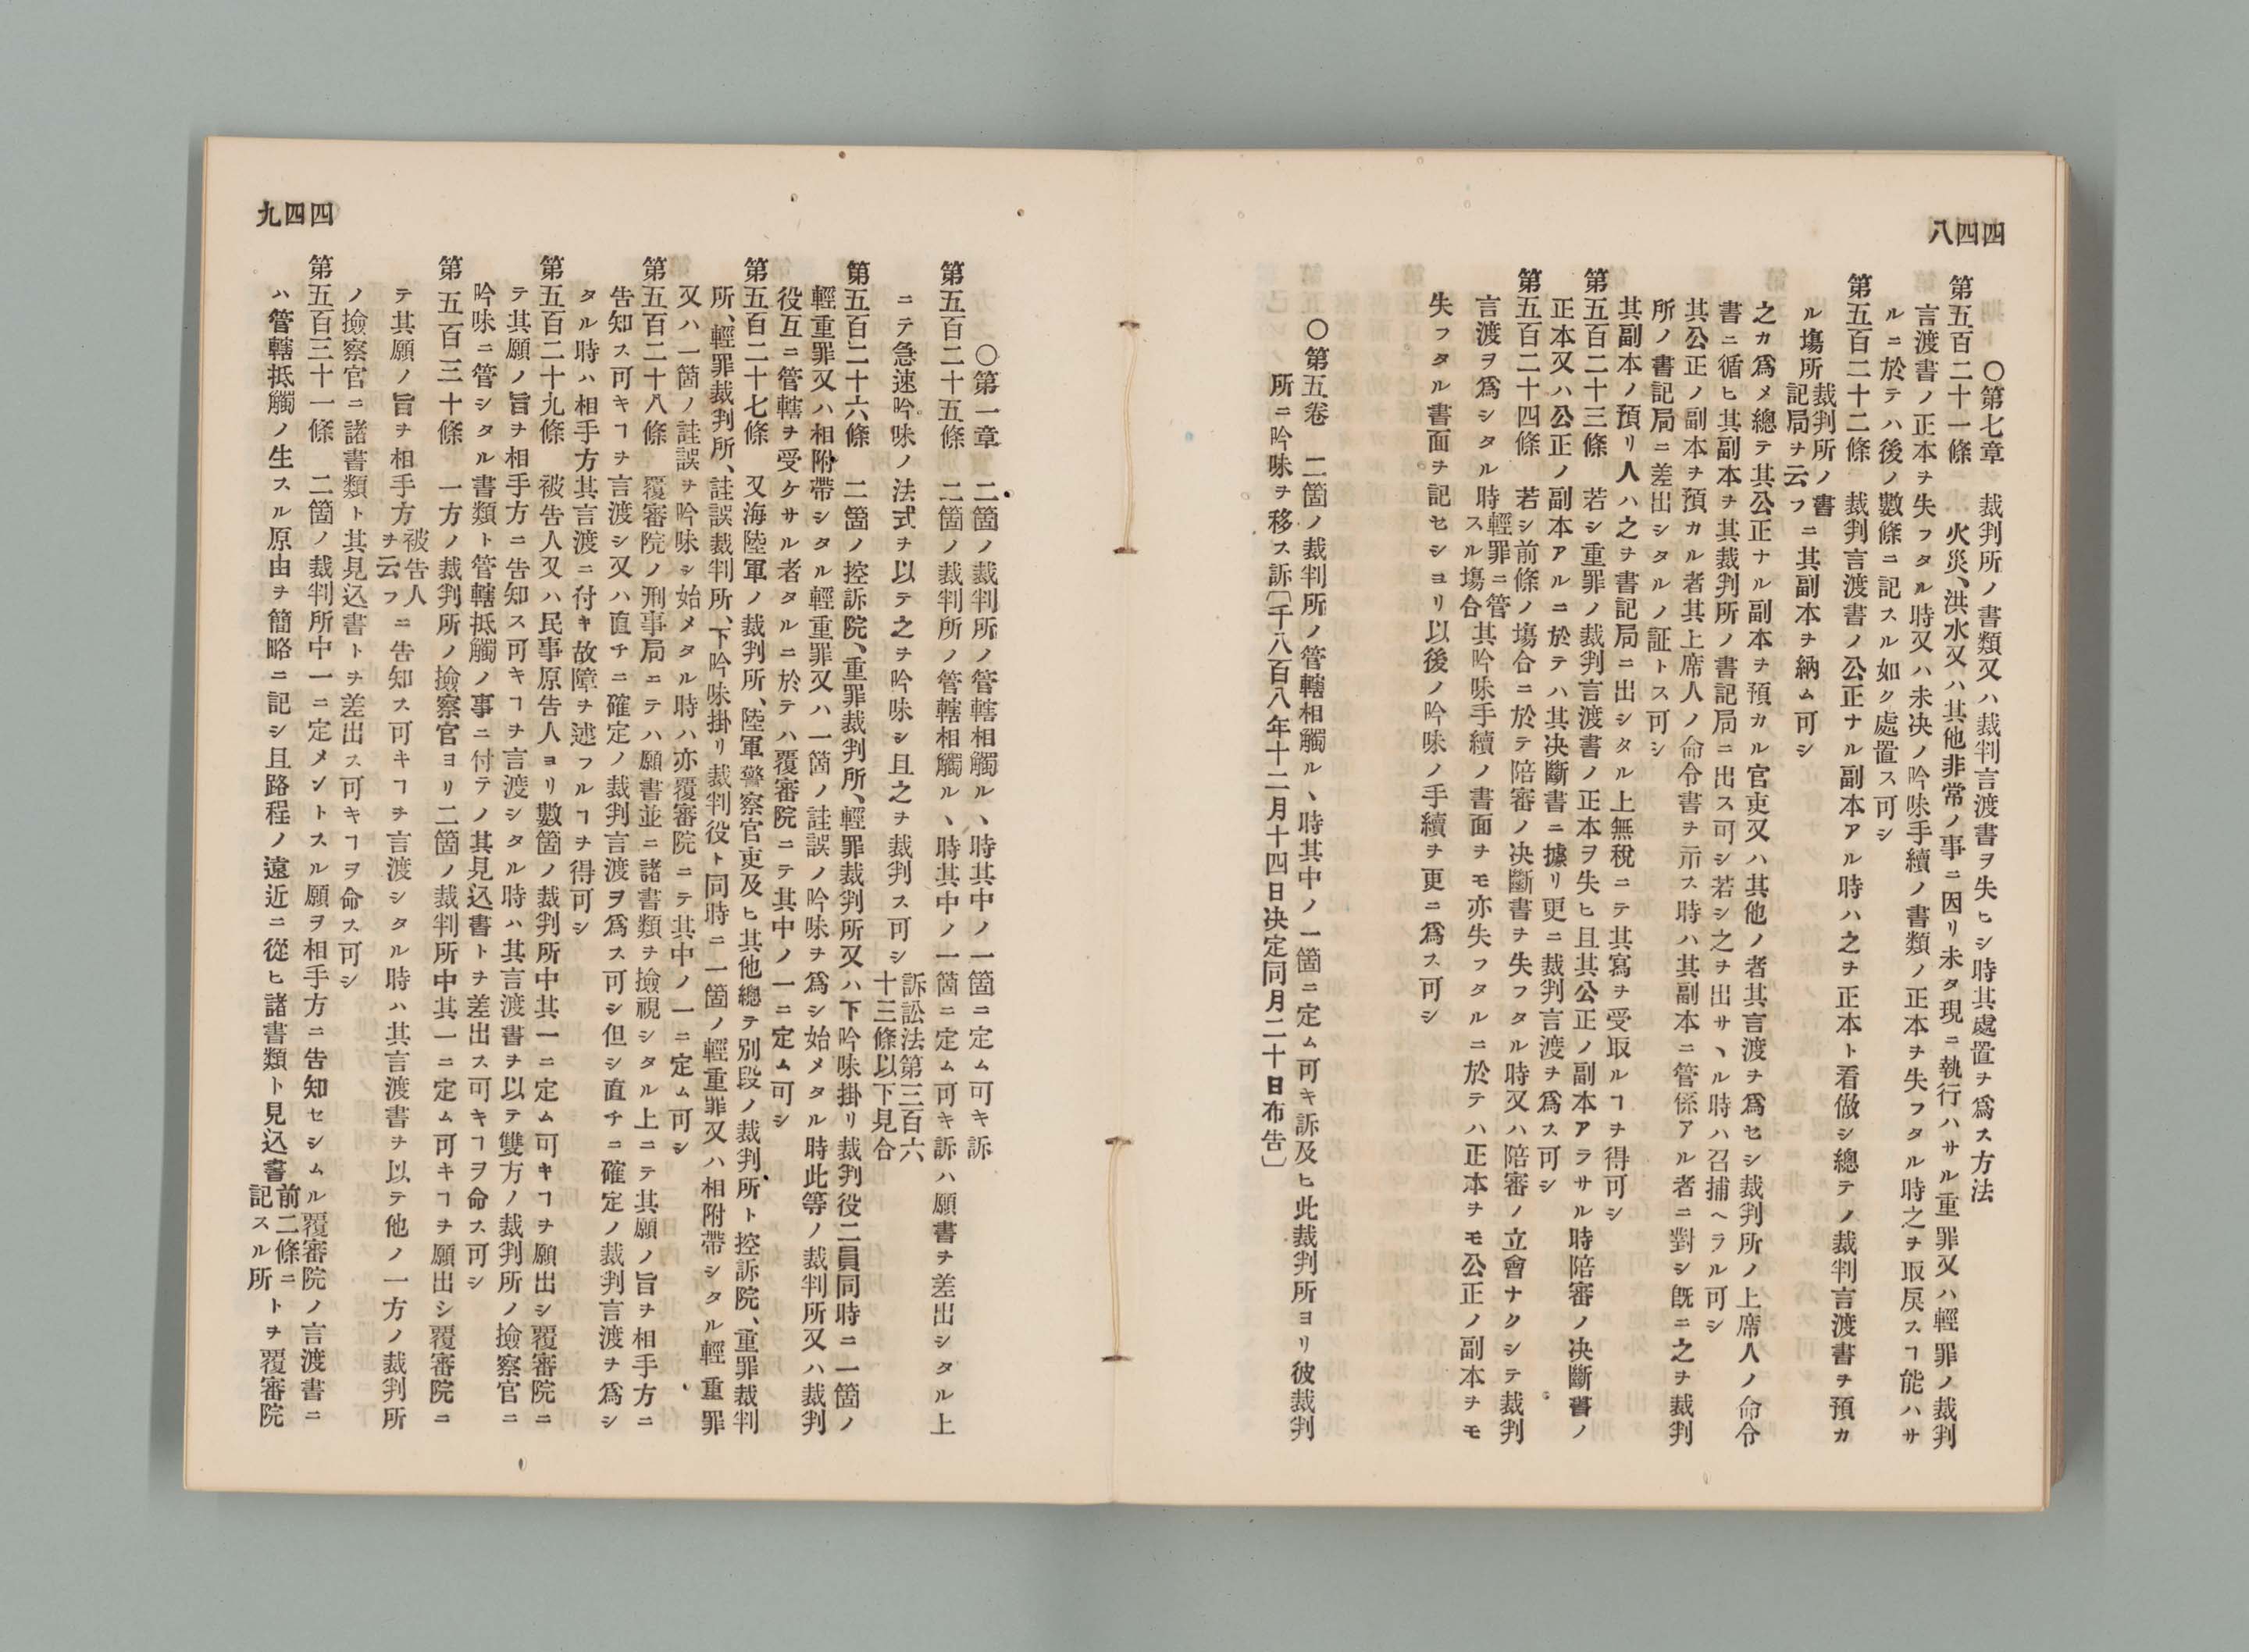 四四八
〇第七章　裁判所ノ書類又ハ裁判言渡書ヲ失ヒシ時其處置ヲ爲ス方法
第五百二十一條　火災、洪水又ハ其他非常ノ事ニ因リ未タ現ニ執行ハサル重罪又ハ輕罪ノ裁判
言渡書ノ正本ヲ失フタル時又ハ未决ノ吟味手續ノ書類ノ正本ヲ失フタル時之ヲ取戻スヿ能ハサ
ルニ於テハ後ノ數條ニ記スル如ク處置ス可シ
第五百二十二條　裁判言渡書ノ公正ナル副本アル時ハ之ヲ正本ト看倣シ總テノ裁判言渡書ヲ預カ
ル塲所裁判所ノ書記局ヲ云フニ其副本ヲ納ム可シ
之カ爲メ總テ其公正ナル副本ヲ預カル官吏又ハ其他ノ者其言渡ヲ爲セシ裁判所ノ上席人ノ命令
書ニ循ヒ其副本ヲ其裁判所ノ書記局ニ出ス可シ若シ之ヲ出サヽル時ハ召捕ヘラル可シ
其公正ノ副本ヲ預カル者其上席人ノ命令書ヲ示ス時ハ其副本ニ管係アル者ニ對シ既ニ之ヲ裁判
所ノ書記局ニ差出シタルノ証トス可シ
其副本ノ預リ人ハ之ヲ書記局ニ出シタル上無稅ニテ其寫ヲ受取ルヿヲ得可シ
第五百二十三條　若シ重罪ノ裁判言渡書ノ正本ヲ失ヒ且其公正ノ副本アラサル時陪審ノ决斷書ノ
正本又ハ公正ノ副本アルニ於テハ其决斷書ニ據リ更ニ裁判言渡ヲ爲ス可シ
第五百二十四條　若シ前條ノ塲合ニ於テ陪審ノ决斷書ヲ失フタル時又ハ陪審ノ立會ナクシテ裁判
言渡ヲ爲シタル時輕罪ニ管スル塲合其吟味手續ノ書面ヲモ亦失フタルニ於テハ正本ヲモ公正ノ副本ヲモ
失フタル書面ヲ記セシヨリ以後ノ吟味ノ手續ヲ更ニ爲ス可シ
〇第五卷　二箇ノ裁判所ノ管轄相觸ルヽ時其中ノ一箇ニ定ム可キ訴及ヒ此裁判所ヨリ彼裁判
所ニ吟味ヲ移ス訴〔千八百八年十二月十四日决定同月二十日布告〕
四四九
〇第一章　二箇ノ裁判所ノ管轄相觸ルヽ時其中ノ一箇ニ定ム可キ訴
第五百二十五條　二箇ノ裁判所ノ管轄相觸ルヽ時其中ノ一箇ニ定ム可キ訴ハ願書ヲ差出シタル上
ニテ急速吟味ノ法式ヲ以テ之ヲ吟味シ且之ヲ裁判ス可シ訴訟法第三百六十三條以下見合
第五百二十六條　二箇ノ控訴院、重罪裁判所、輕罪裁判所又ハ下吟味掛リ裁判役二員同時ニ一箇ノ
輕重罪又ハ相附帶シタル輕重罪又ハ一箇ノ註誤ノ吟味ヲ爲シ始メタル時此等ノ裁判所又ハ裁判
役互ニ管轄ヲ受ケサル者タルニ於テハ覆審院ニテ其中ノ一ニ定ム可シ
第五百二十七條　又海陸軍ノ裁判所、陸軍警察官吏及ヒ其他總テ別段ノ裁判所ト控訴院、重罪裁判
所、輕罪裁判所、註誤裁判所、下吟味掛リ裁判役ト同時ニ一箇ノ輕重罪又ハ相附帶シタル輕重罪
又ハ一箇ノ註誤ヲ吟味シ始メタル時ハ亦覆審院ニテ其中ノ一ニ定ム可シ
第五百二十八條　覆審院ノ刑事局ニテハ願書並ニ諸書類ヲ撿視シタル上ニテ其願ノ旨ヲ相手方ニ
告知ス可キヿヲ言渡シ又ハ直チニ確定ノ裁判言渡ヲ爲ス可シ但シ直チニ確定ノ裁判言渡ヲ爲シ
タル時ハ相手方其言渡ニ付キ故障ヲ述フルヿヲ得可シ
第五百二十九條　被告人又ハ民事原告人ヨリ數箇ノ裁判所中其一ニ定ム可キヿヲ願出シ覆審院ニ
テ其願ノ旨ヲ相手方ニ告知ス可キヿヲ言渡シタル時ハ其言渡書ヲ以テ雙方ノ裁判所ノ撿察官ニ
吟味ニ管シタル書類ト管轄抵觸ノ事ニ付テノ其見込書トヲ差出ス可キヿヲ命ス可シ
第五百三十條　一方ノ裁判所ノ撿察官ヨリ二箇ノ裁判所中其一ニ定ム可キヿヲ願出シ覆審院ニ
テ其願ノ旨ヲ相手方被告人ヲ云フニ告知ス可キヿヲ言渡シタル時ハ其言渡書ヲ以テ他ノ一方ノ裁判所
ノ撿察官ニ諸書類ト其見込書トヲ差出ス可キヿヲ命ス可シ
第五百三十一條　二箇ノ裁判所中一ニ定メントスル願ヲ相手方ニ告知セシムル覆審院ノ言渡書ニ
ハ管轄抵觸ノ生スル原由ヲ簡略ニ記シ且路程ノ遠近ニ從ヒ諸書類ト見込書前二條ニ記スル所トヲ覆審院